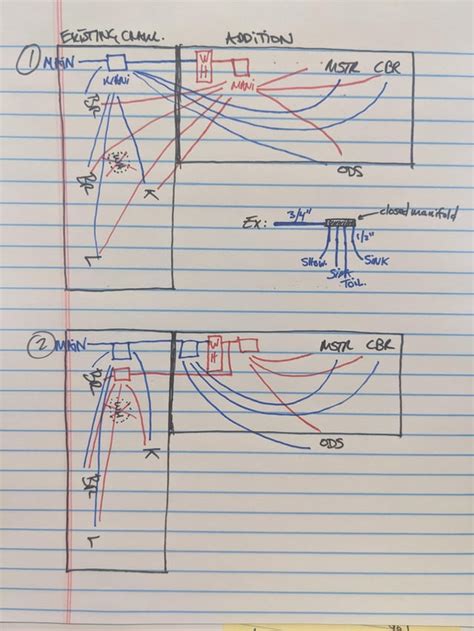 EXISTING CRAWL.    ADDITION
① MAIN
W
H
MANi
MANi
MSTR    CBR
BR
BR
K
L
ODS
Ex:
3/4"
closed manifold
1/2"
SHOW.
SINK
TOIL.
SINK
② MAIN
W
H
MSTR    CBR
BR
K
ODS
BR
L